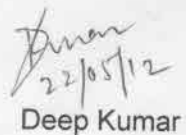 22/05/12
Deep Kumar